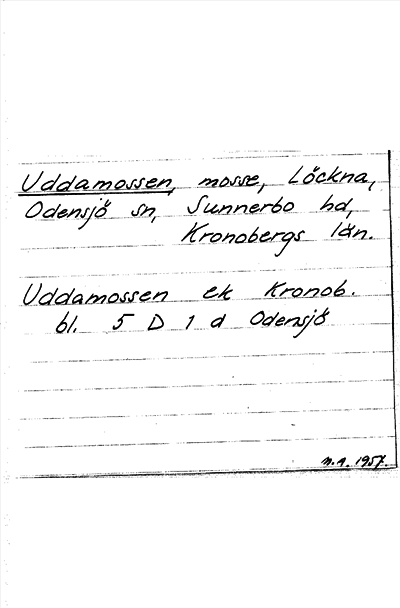 Uddamossen, mosse, Löckna,
Odensjö sn, Sunnerbo hd,
Kronobergs län.
Uddamossen ek Kronob.
bl. 5 D 1 d Odensjö
n.a. 1957.